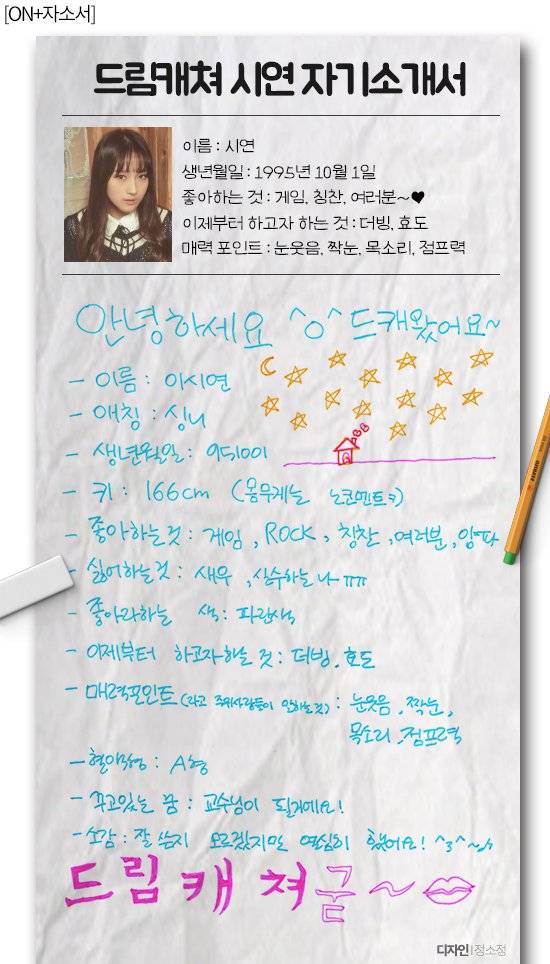 [ON+자소서]
드림캐쳐 시연 자기소개서
이름 : 시연
생년월일 : 1995년 10월 1일
좋아하는 것 : 게임, 칭찬, 여러분~♥
이제부터 하고자 하는 것 : 더빙, 효도
매력 포인트 : 눈웃음, 짝눈, 목소리, 점프력
안녕하세요 ^o^ 드캐왔어요~
- 이름 : 이시연
- 애칭 : 싱니
- 생년월일 : 951001
- 키 : 166cm (몸무게는 노코멘트ㅋ)
- 좋아하는것 : 게임, ROCK, 칭찬, 여러분, 양파
- 싫어하는것 : 새우, 실수하는 나 ㅠㅠ
- 좋아라하는 색 : 파란색
- 이제부터 하고자하는 것 : 더빙, 효도
- 매력포인트 (라고 주위사람들이 말하는것) : 눈웃음, 짝눈,
목소리, 점프력
- 혈액형 : A형
- 꾸고있는 꿈 : 교수님이 될거예요!
- 소감 : 잘 쓴지 모르겠지만 열심히 했어요! ^3^~♪
드림캐쳐굳~
디자인 | 정소정